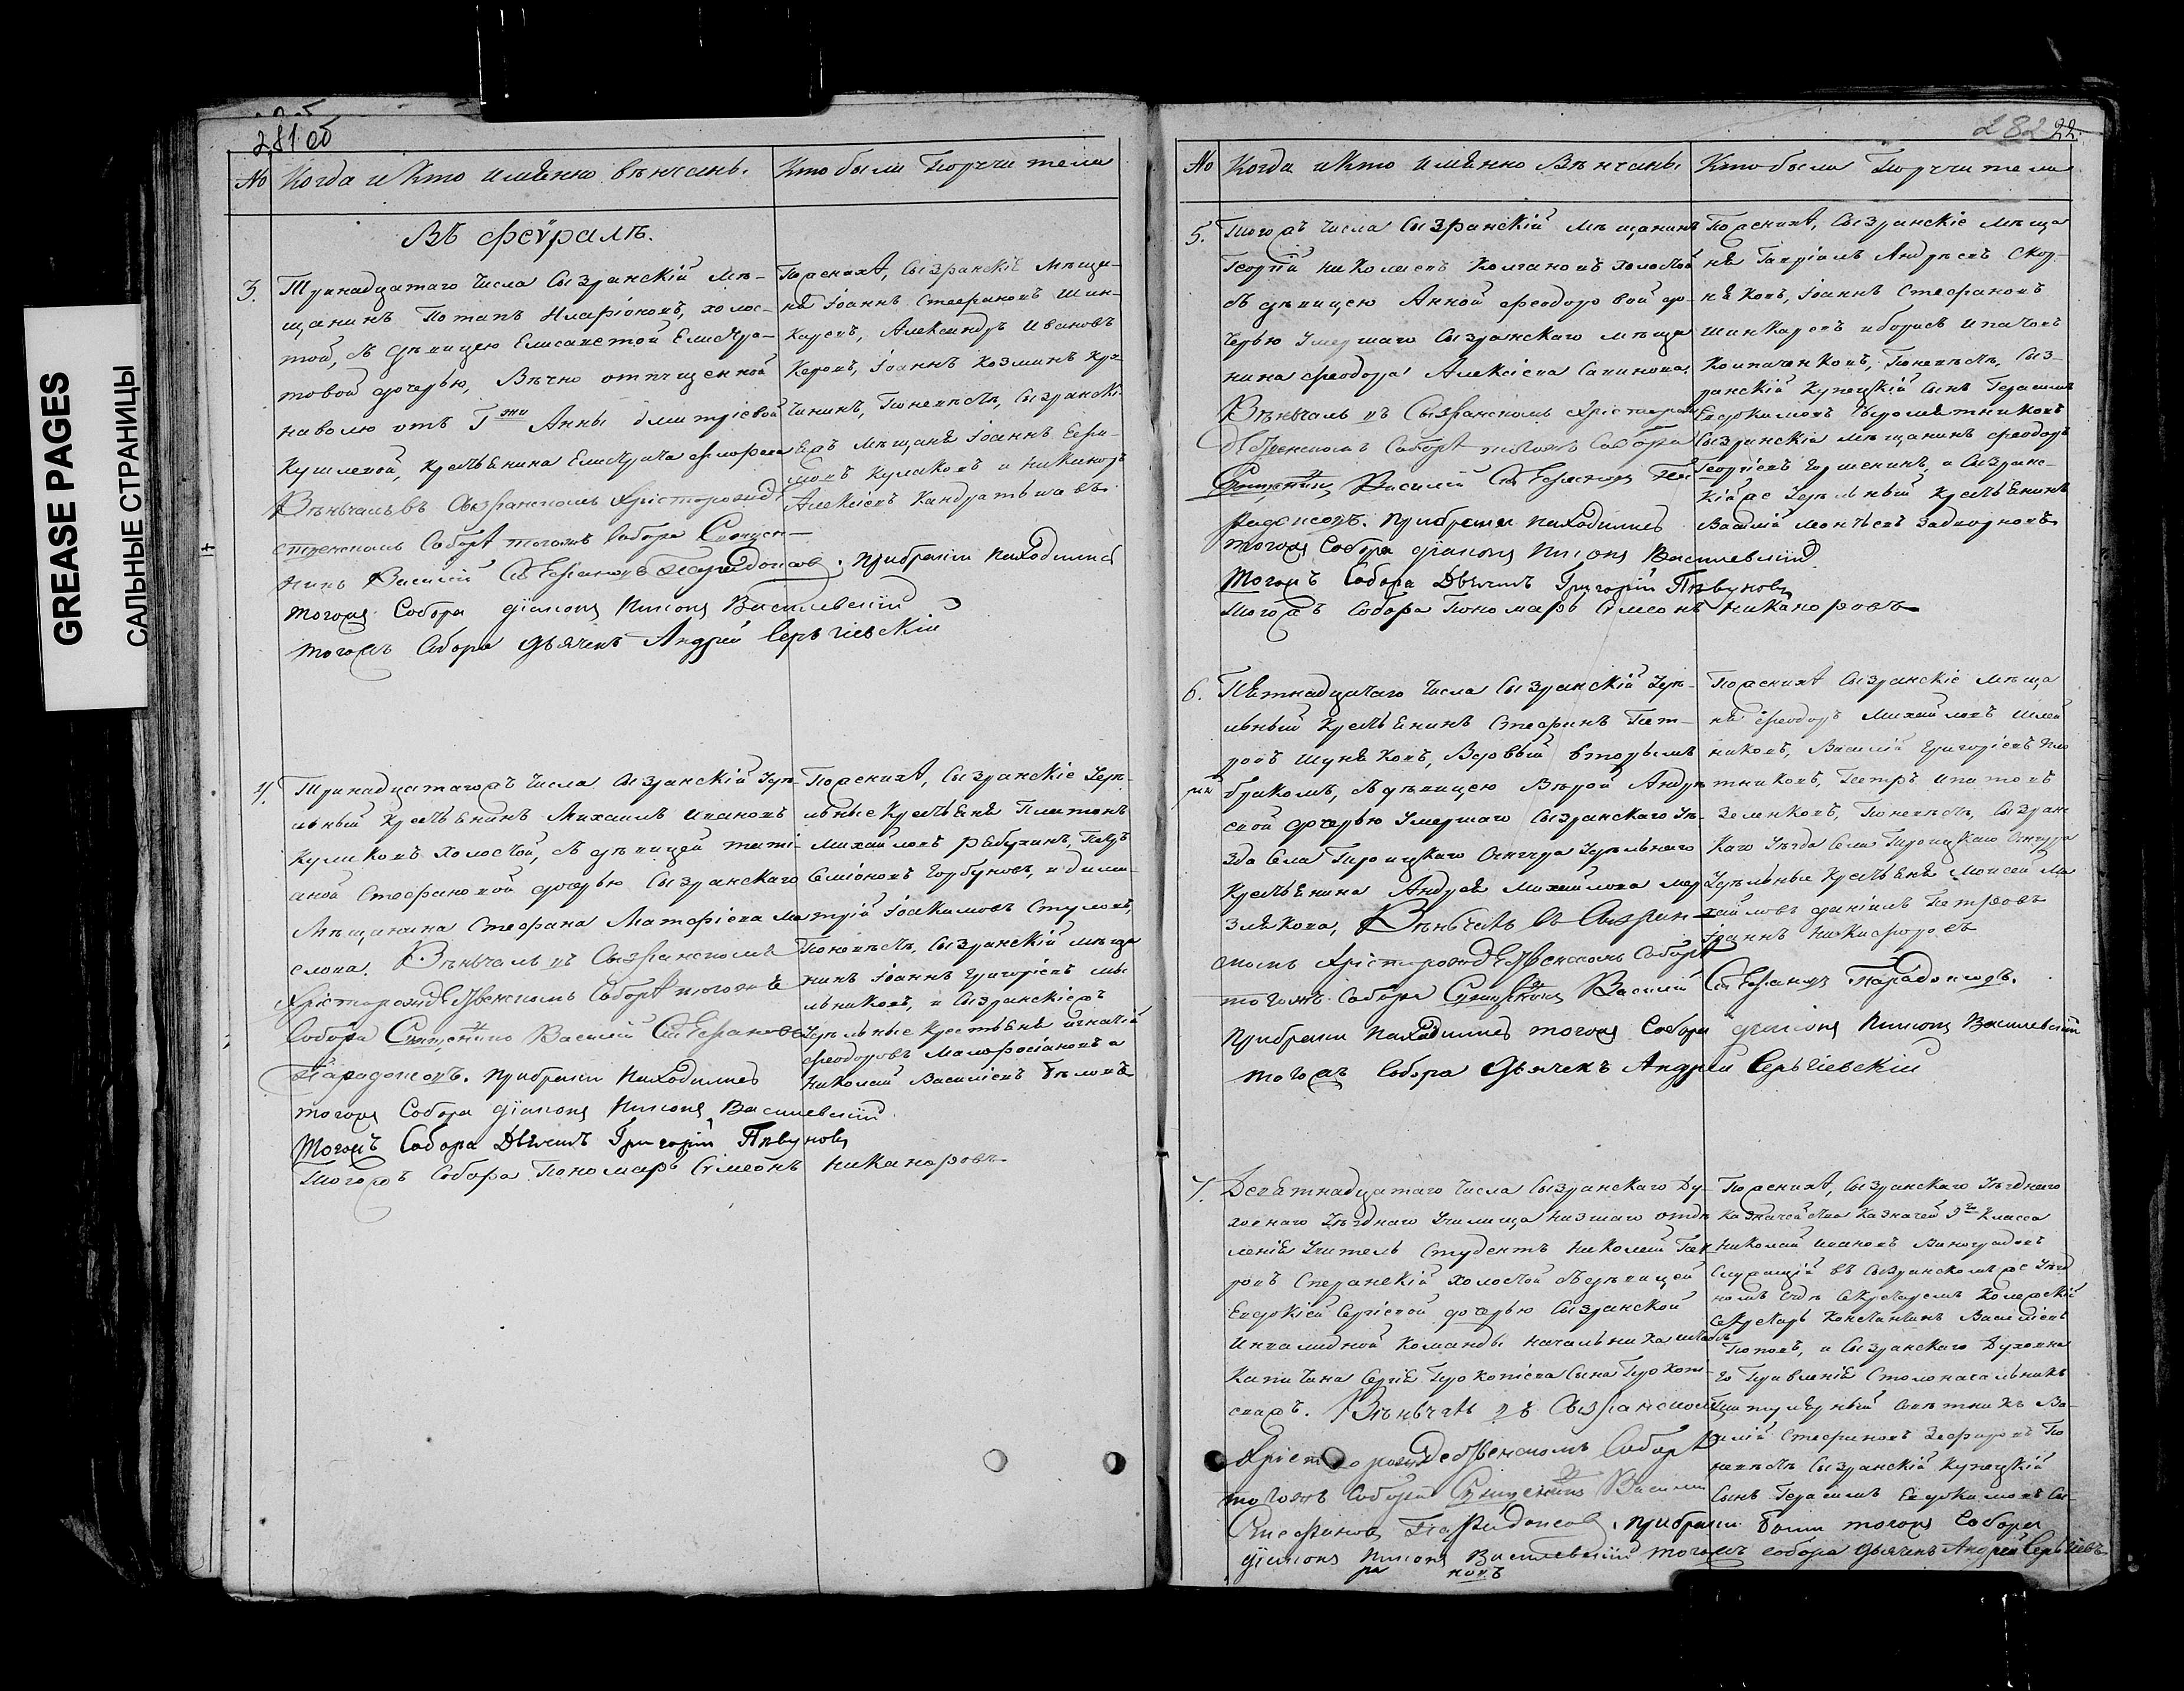 GREASE PAGES
САЛЬНЫЕ СТРАНИЦЫ
281 об
№ Когда и Кто имянно вѣнчаны. Кто были Поручители
Въ февралѣ.
3. Тринадцатаго Числа Сызранскій Мѣ-
щанинъ Потапъ Иларіоновъ, холос-
той, съ дѣвицею Елисаветой Елистра-
товой дочерью, Вѣчно отпущенной
на волю отъ Гжи Анны Дмитріевой
Кушлевой, крестьянина Елистрата
Вѣнчалъ въ Сызранскомъ Христорожде
ственскомъ Соборѣ тогожъ Собора Священ-
никъ Василій Стефановъ Парадоксовъ. при браки находились
тогожъ Собора діаконъ Василевскій
тогожъ Собора дьячекъ Андрей Сергіевскій
По женихѣ, Сызранскіе Мѣща-
не Іоаннъ Стефановъ Шин-
каревъ, Александръ Ивановъ
Іоаннъ Козминъ
По невѣстѣ, Сызранскі-
ежъ мѣщане Іоаннъ Ефи-
мовъ Кулаковъ и Никаноръ
Алексіевъ Кандратьевъ
4. Тринадцатагожъ Числа Сызранскій Удѣ-
льный Крестьянинъ Михаилъ Ивановъ
Куликовъ холостой, съ дѣвицей Тати-
аной Стефановой дочерью Сызранскаго
Мѣщанина Стефана Матфіева Ма
слова. Вѣнчалъ въ Сызранскомъ
Христорождественскомъ Соборѣ тогожъ
Собора Священникъ Василій Стефановъ
Парадоксовъ. при браки находились
тогожъ Собора діаконъ Василевскій
Тогожъ Собора Дьячекъ Григорій Пѣвуновъ
Тогожъ Собора Пономарь Симеонъ Никаноровъ
По женихѣ, Сызранскіе Удѣ-
льные Крестьяне Платонъ
Михайловъ Рябухинъ,
Симіоновъ Горбуновъ, и Дими-
трій Іоакимовъ Стуловъ,
По невѣстѣ, Сызранскій мѣща
нинъ Іоаннъ Григоріевъ Мы
льниковъ, и Сызранскіежъ
Удѣльные Крестьяне Игнатій
Феодоровъ Малофіановъ а
Николай Василіевъ Бѣловъ
282 22.
№ Когда и Кто имянно Вѣнчаны Кто были Поручители
5. Тогожъ Числа Сызранскій Мѣщанинъ
Георгій Николаевъ Колчановъ холостой
съ дѣвицею Анной Феодоровой до-
черью Умершаго Сызранскаго мѣща
нина Феодора Алексіева Сапинова.
Вѣнчалъ въ Сызранскомъ Христорож
дественскомъ Соборѣ тогожъ Собора
Священникъ Василій Стефановъ Па
радоксовъ. при браки находились
тогожъ Собора діаконъ Василевскій
Тогожъ Собора Дьячекъ Григорій Пѣвуновъ
Тогожъ Собора Пономарь Симеонъ Никаноровъ
По женихѣ, Сызранскіе Мѣща
не Гавріилъ Андреевъ Скор-
няковъ, Іоаннъ Стефановъ
Шинкаревъ и Борисъ Ипатовъ
По невѣстѣ, Сыз-
ранскій Купецкій сынъ Герасимъ
Евдокимовъ Сыромятниковъ
Сызранскіе мѣщанинъ Феодоръ
Георгіевъ Горшенинъ, а Сызранс-
кійже Удѣльный Крестьянинъ
Василій Леонтьевъ Задворновъ
6. Пятнадцатаго Числа Сызранскій Удѣ-
льный Крестьянинъ Стефанъ Пет-
ровъ Шуняковъ, Вдовый вторымъ
бракомъ, съ дѣвицею Вѣрой Андре
евой дочерью Умершаго Сызранскаго Уѣ-
зда Села Троицкаго Сунгура Удѣльнаго
Крестьянина Андрея Михайлова Мер
злякова, Вѣнчалъ въ Сызран-
скомъ Христорождественскомъ Соборѣ
тогожъ Собора Священникъ Василій Стефановъ Парадоксовъ.
При браки находились тогожъ Собора діаконъ Василевскій
тогожъ Собора Дьячекъ Андрей Сергіевскій
По женихѣ Сызранскіе Мѣща
не Феодоръ Михайловъ
Василій Григоріевъ Пло
тниковъ, Петръ Ипатовъ
Зеленковъ, По невѣстѣ, Сызранс
каго Уѣзда Села Троицкаго Сунгура
Удѣльные Крестьяне Моисей Ми
хайловъ Даніилъ Петровъ
Іоаннъ Никифоровъ
7. Девятнадцатаго Числа Сызранскаго Ду-
ховнаго Уѣзднаго Училища низшаго отдѣ
ленія Учитель Студентъ Николай Пет
ровъ Сперанскій холостой съ дѣвицей
Евдокіей Сергіевой дочерью Сызранской
Инвалидной Команды начальника штабсъ
Капитана Сергія Прокопіева Сына Прокопі
ева. Вѣнчалъ въ Сызранскомъ
Христорождественскомъ Соборѣ
тогожъ Собора Священникъ Василій
Стефановъ Парадоксовъ. при браки были тогожъ Собора
діаконъ Василевскій тогожъ собора дьячекъ Андрей Сергіевъ
По женихѣ, Сызранскаго Уѣзднаго
Казначейства Казначей 9го Класса
Николай Ивановъ Виноградовъ
Служащій въ Сызранскомъже Уѣзд
номъ Судѣ Секретаремъ Колежскій
Секретарь Константинъ Василіевъ
Поповъ, и Сызранскаго Духовна
го Правленія Столоначальникъ
Титулярный Совѣтникъ Ва-
силій Стефановъ Зефировъ По
невѣстѣ Сызранскій Купецкій
Сынъ Герасимъ Евдокимовъ Сы-